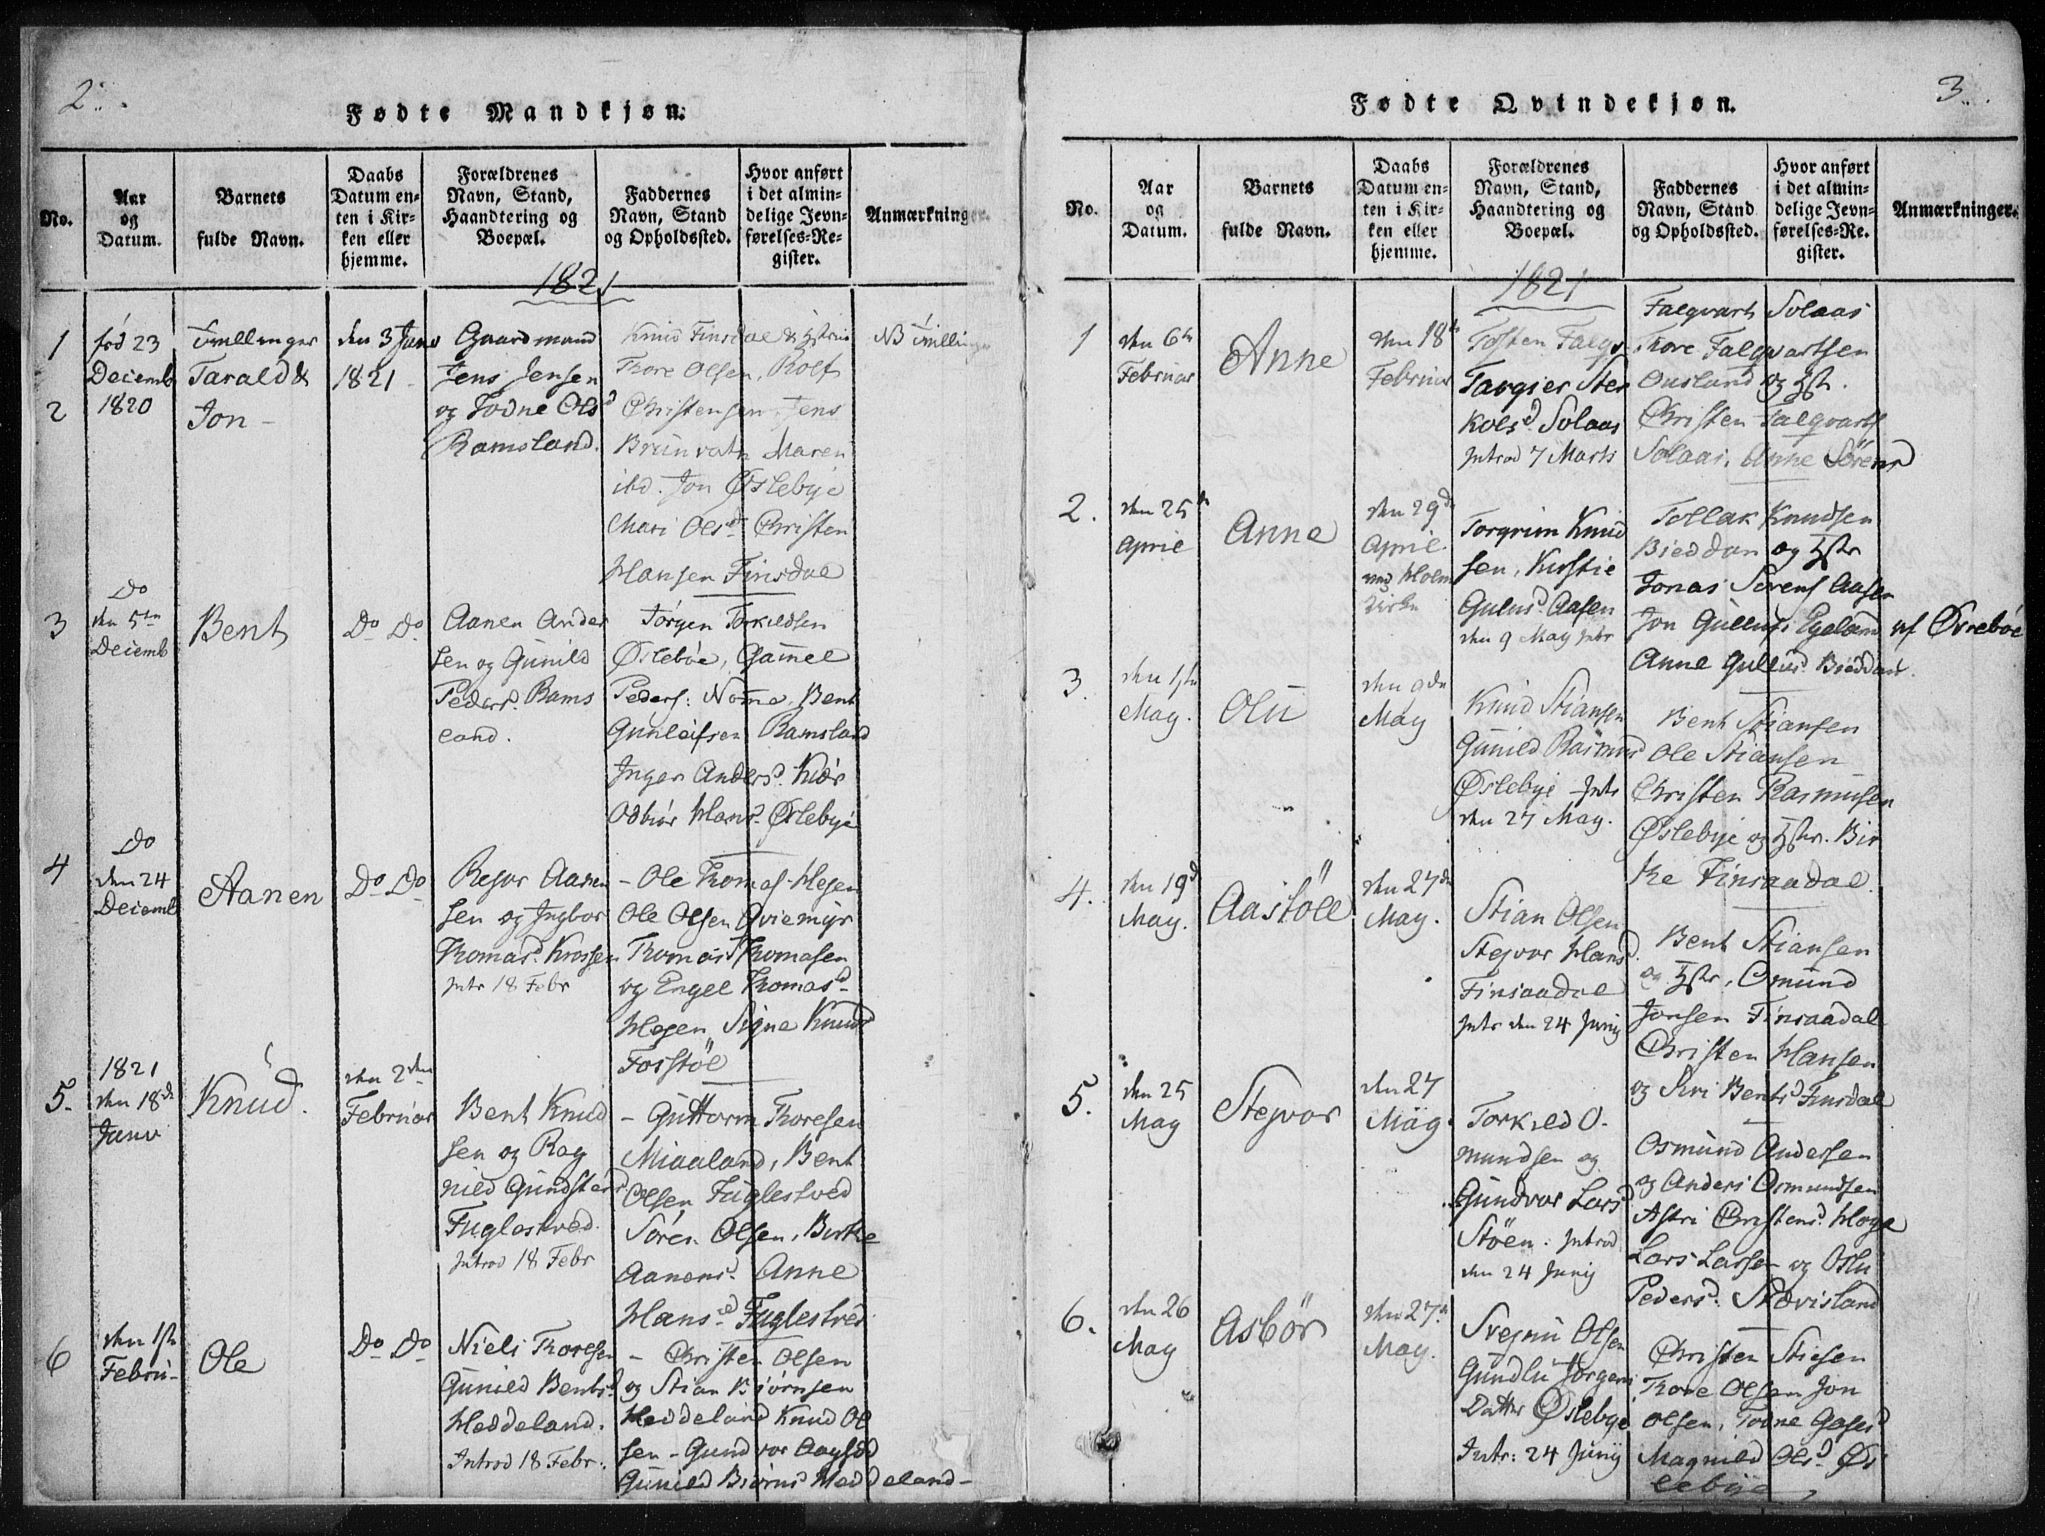 2.
Fødte Mandkjøn.
No.
Aar
og
Datum.
Barnets
fulde Navn.
Daabs
Datum en-
ten i Kir-
ken eller
hjemme.
Forældrenes
Navn, Stand,
Haandtering og
Boepæl.
Faddernes
Navn, Stand
og Opholdssted.
Hvor anført
i det almin-
delige Jevn-
førelses-Re-
gister.
Anmærkninger.
1821
1
2
fød 23
Decemb
1820
Tvillinger
Tarald &
Jon -
den 3 Janv
1821 -
Gaardmand
Jens Jensen
og Todne Olsd
Ramsland.
Knud Finsdal &
Thore Olsen, Rolf
Christensen, Jens
Brunvatn Maren
ibd. Jon Øslebye
Mari Olsd Christen
Hansen Finsdal
NB Tvillinger
3
Do
den 5te
Decemb
Bent
Do Do
Aanen Ander
sen og Gunild
Peders. Rams
land.
Jørgen Torkildsen
Øslebøe, Gamel
Peders: Nome. Bent
Gunleifsen Ramsland
Inger Andersd. Kiær
Odbiør Hans. Øslebye
4
Do
den 24
Decemb
Aanen
Do Do
Rejar Aanen
sen og Ingbor
Thomasd. Krossen
Intr 18 Febr
- Ole Thomas. Hejen
Ole Olsen Qviemyr
Thomas Thomasen
og Engel Thomasd
Hejen, Signe Knuds
Fosstøl
5.
1821
den 18de
Janv
Knud.
den 2den
Februar
Bent Knud
sen og Rag
nild Gundsteds
Fuglestved.
Introd 18 Febr
- Guttorm Thoresen
Miaaland, Bent
Olsen Fuglestved
Søren Olsen, Birthe
Aanensd. Anne
Hansd Fuglestved
6
den 1ste
Febru-
Ole
Do Do
Niels Thoresen
Gunild Bentsd
Heddeland.
Introd 18 Febr.
- Christen Olsen
og Stian Biørnsen
Heddeland Knud Ol
sen - Gundvor Aagesd
Gunild Biørns Heddeland -
3.
Fødte Qvindekjøn.
No.
Aar
og
Datum.
Barnets
fulde Navn.
Daabs
Datum en-
ten i Kir-
ken eller
hjemme.
Forældrenes
Navn, Stand,
Haandtering og
Boepæl.
Faddernes
Navn, Stand
og Opholdssted.
Hvor anført
i det almin-
delige Jevn-
førelses-Re-
gister.
Anmærkninger.
1821
1
den 6te
Februar
Anne
den 18de
Februar
Tosten Falqv
Targier Ster
kolsd. Solaas
Introd 7 Marts
Falqvart Solaas
Thore Falqvartsen
Ousland og Hstr.
Christen Falqvarts
Solaas. Anne Sørensd
2.
den 25de
April
Anne
den 29de
April
ved Holm
Kirke
Torgrim Knud
sen, Kirstie
Gulusd. Aasen
den 9 May Intr
Tellak Knudsen
Bieddan og Hstr
Jonas Sørens Aasen
Jon Gullus. Egeland af Øvrebøe
Anne Gullusd. Bieddan.
3.
den 1ste
May.
Olu
den 9de
May
Knud Stiansen
Gunild Rasmusd
Øslebye Intr
den 27 May.
Bent Stiansen
Ole Stiansen
Christen Rasmusen
Øslebye og Hstr. Bir
the Finsaadal.
4.
den 19de
May.
Aastøll
den 27de
May.
Stian Olsen
Stejvor Hansd.
Finsaadal
Intr den 24 Junij
Bent Stiansen
og Hstr, Omund
Jonsen Finsaadal
Christen Hansen
og Siri Bentsd Finsdal
5.
den 25
May
Stejvor
den 27
May.
Torkild O-
mundsen og
Gundvor Larsd
Støen. Introd
den 24 Junij
Osmund Andersen
og Anders Osmundsen
Astri Christensd. Hoye
Lars Larsen og Oslu
Pedersd. Skævisland
6.
den 26
May
Asbør
den 27de
May.
Svejnu Olsen
Gundlu Jørgens
Datter Øslebye
Intr: 24 Junij
Christen Stiesen
Thore Olsen Jon
Olsen, Todne Gasesd
Magnild Olsd. Øs
lebye